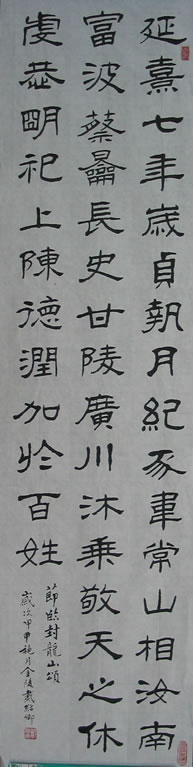 延熹七年歲貞執月紀豕韋常山相汝南
富波蔡長史甘陵廣川沐乘敬天之休
虔恭明祀上陳德潤加於百姓
節臨封龍山頌
歲次甲申月金陵戴紹卿